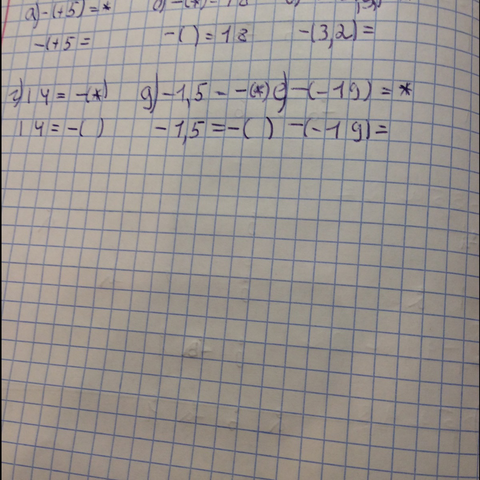 а) -(+5) = *
-(+5 = -( ) = 18 -(3,2) =
г) 14 = -(*) д) -1,5 = -(*) е) -(-19) = *
14 = -( ) -1,5 = -( ) -(-19) =